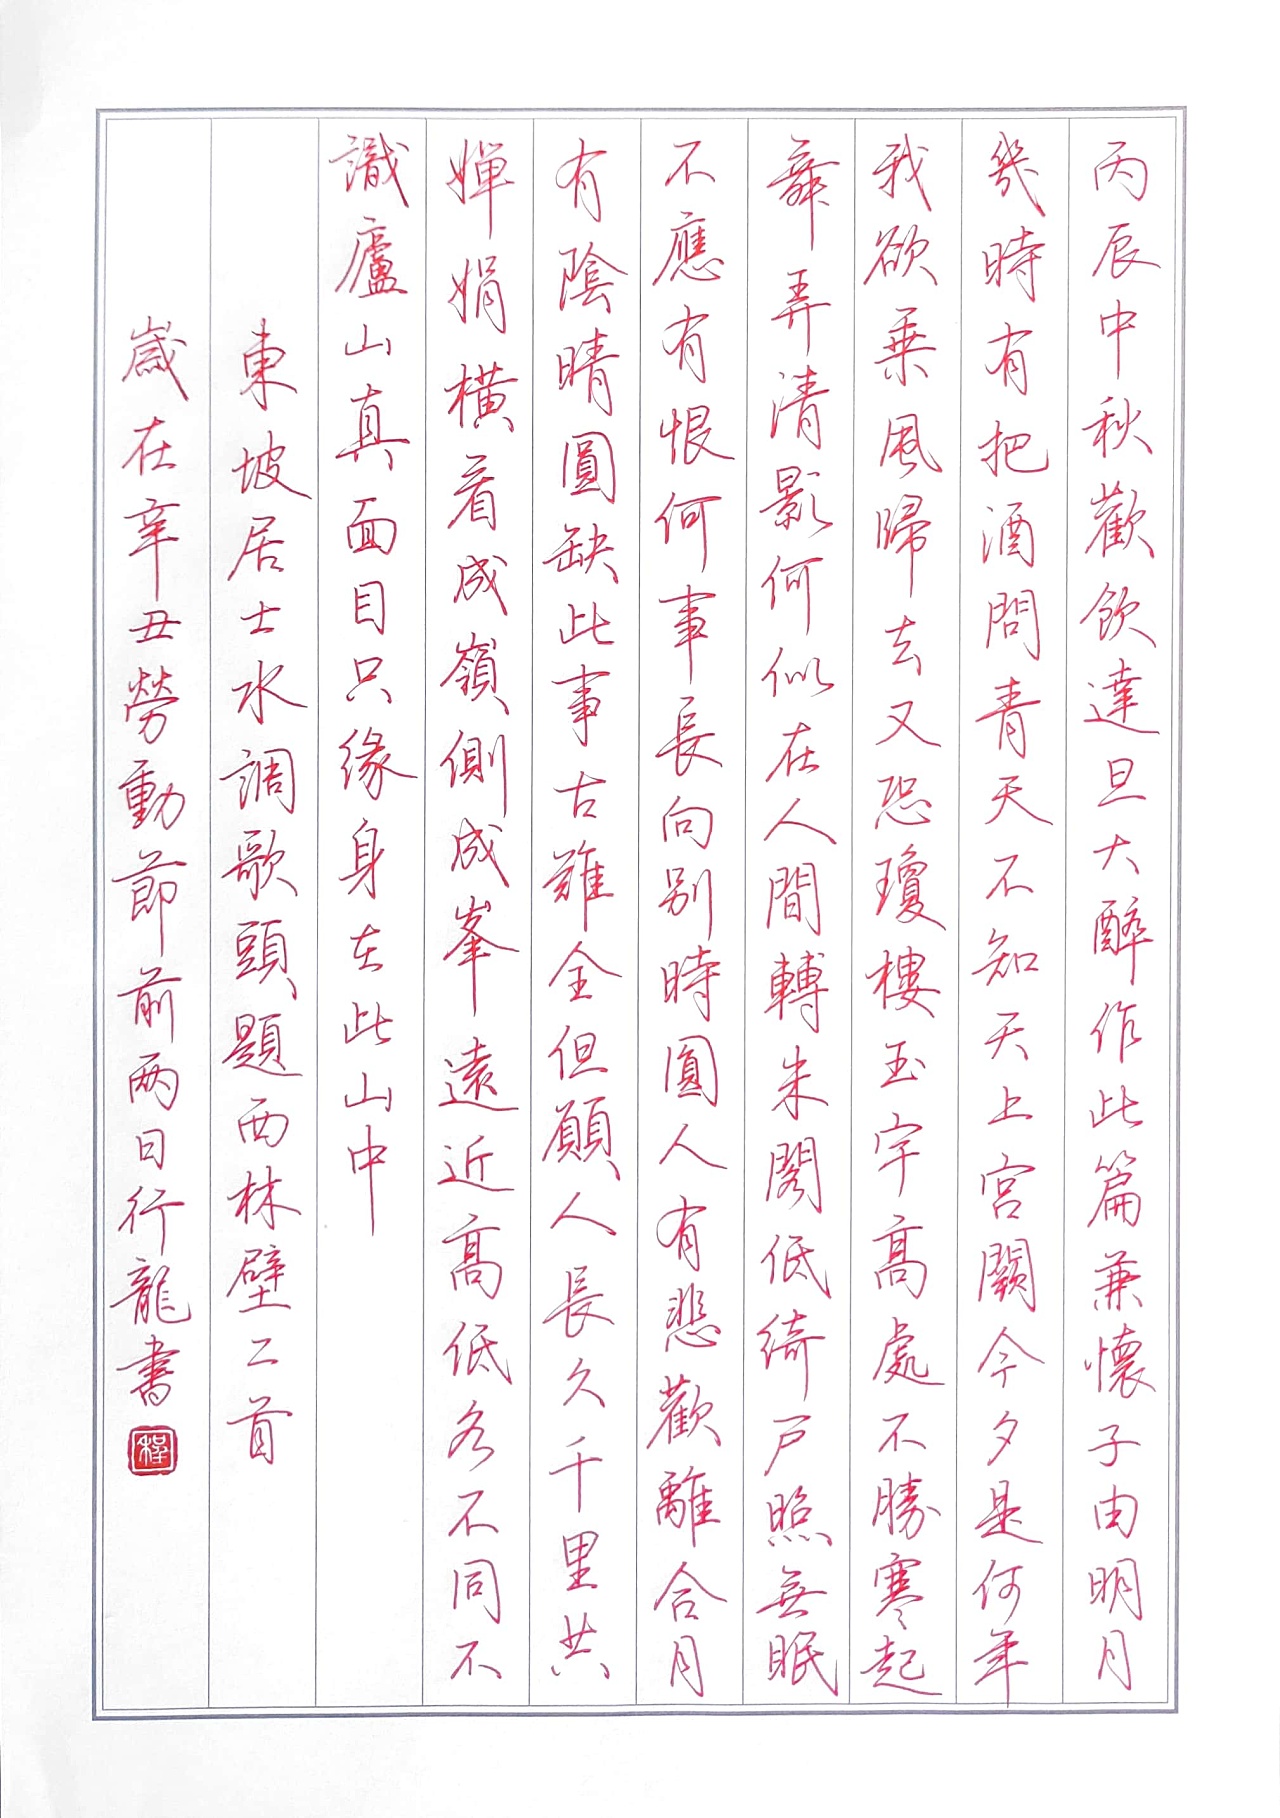 丙辰中秋歡飲達旦大醉作此篇兼懷子由明月
幾時有把酒問青天不知天上宮闕今夕是何年
我欲乗風歸去又恐瓊樓玉宇高處不勝寒起
舞弄清影何似在人間轉朱閣低綺戸照無眠
不應有恨何事長向别時圓人有悲歡離合月
有陰晴圓缺此事古難全但願人長久千里共
嬋娟橫看成嶺側成峯遠近高低各不同不
識廬山真面目只緣身在此山中
東坡居士水調歌頭題西林壁二首
歲在辛丑勞動節前兩日行龍書
程